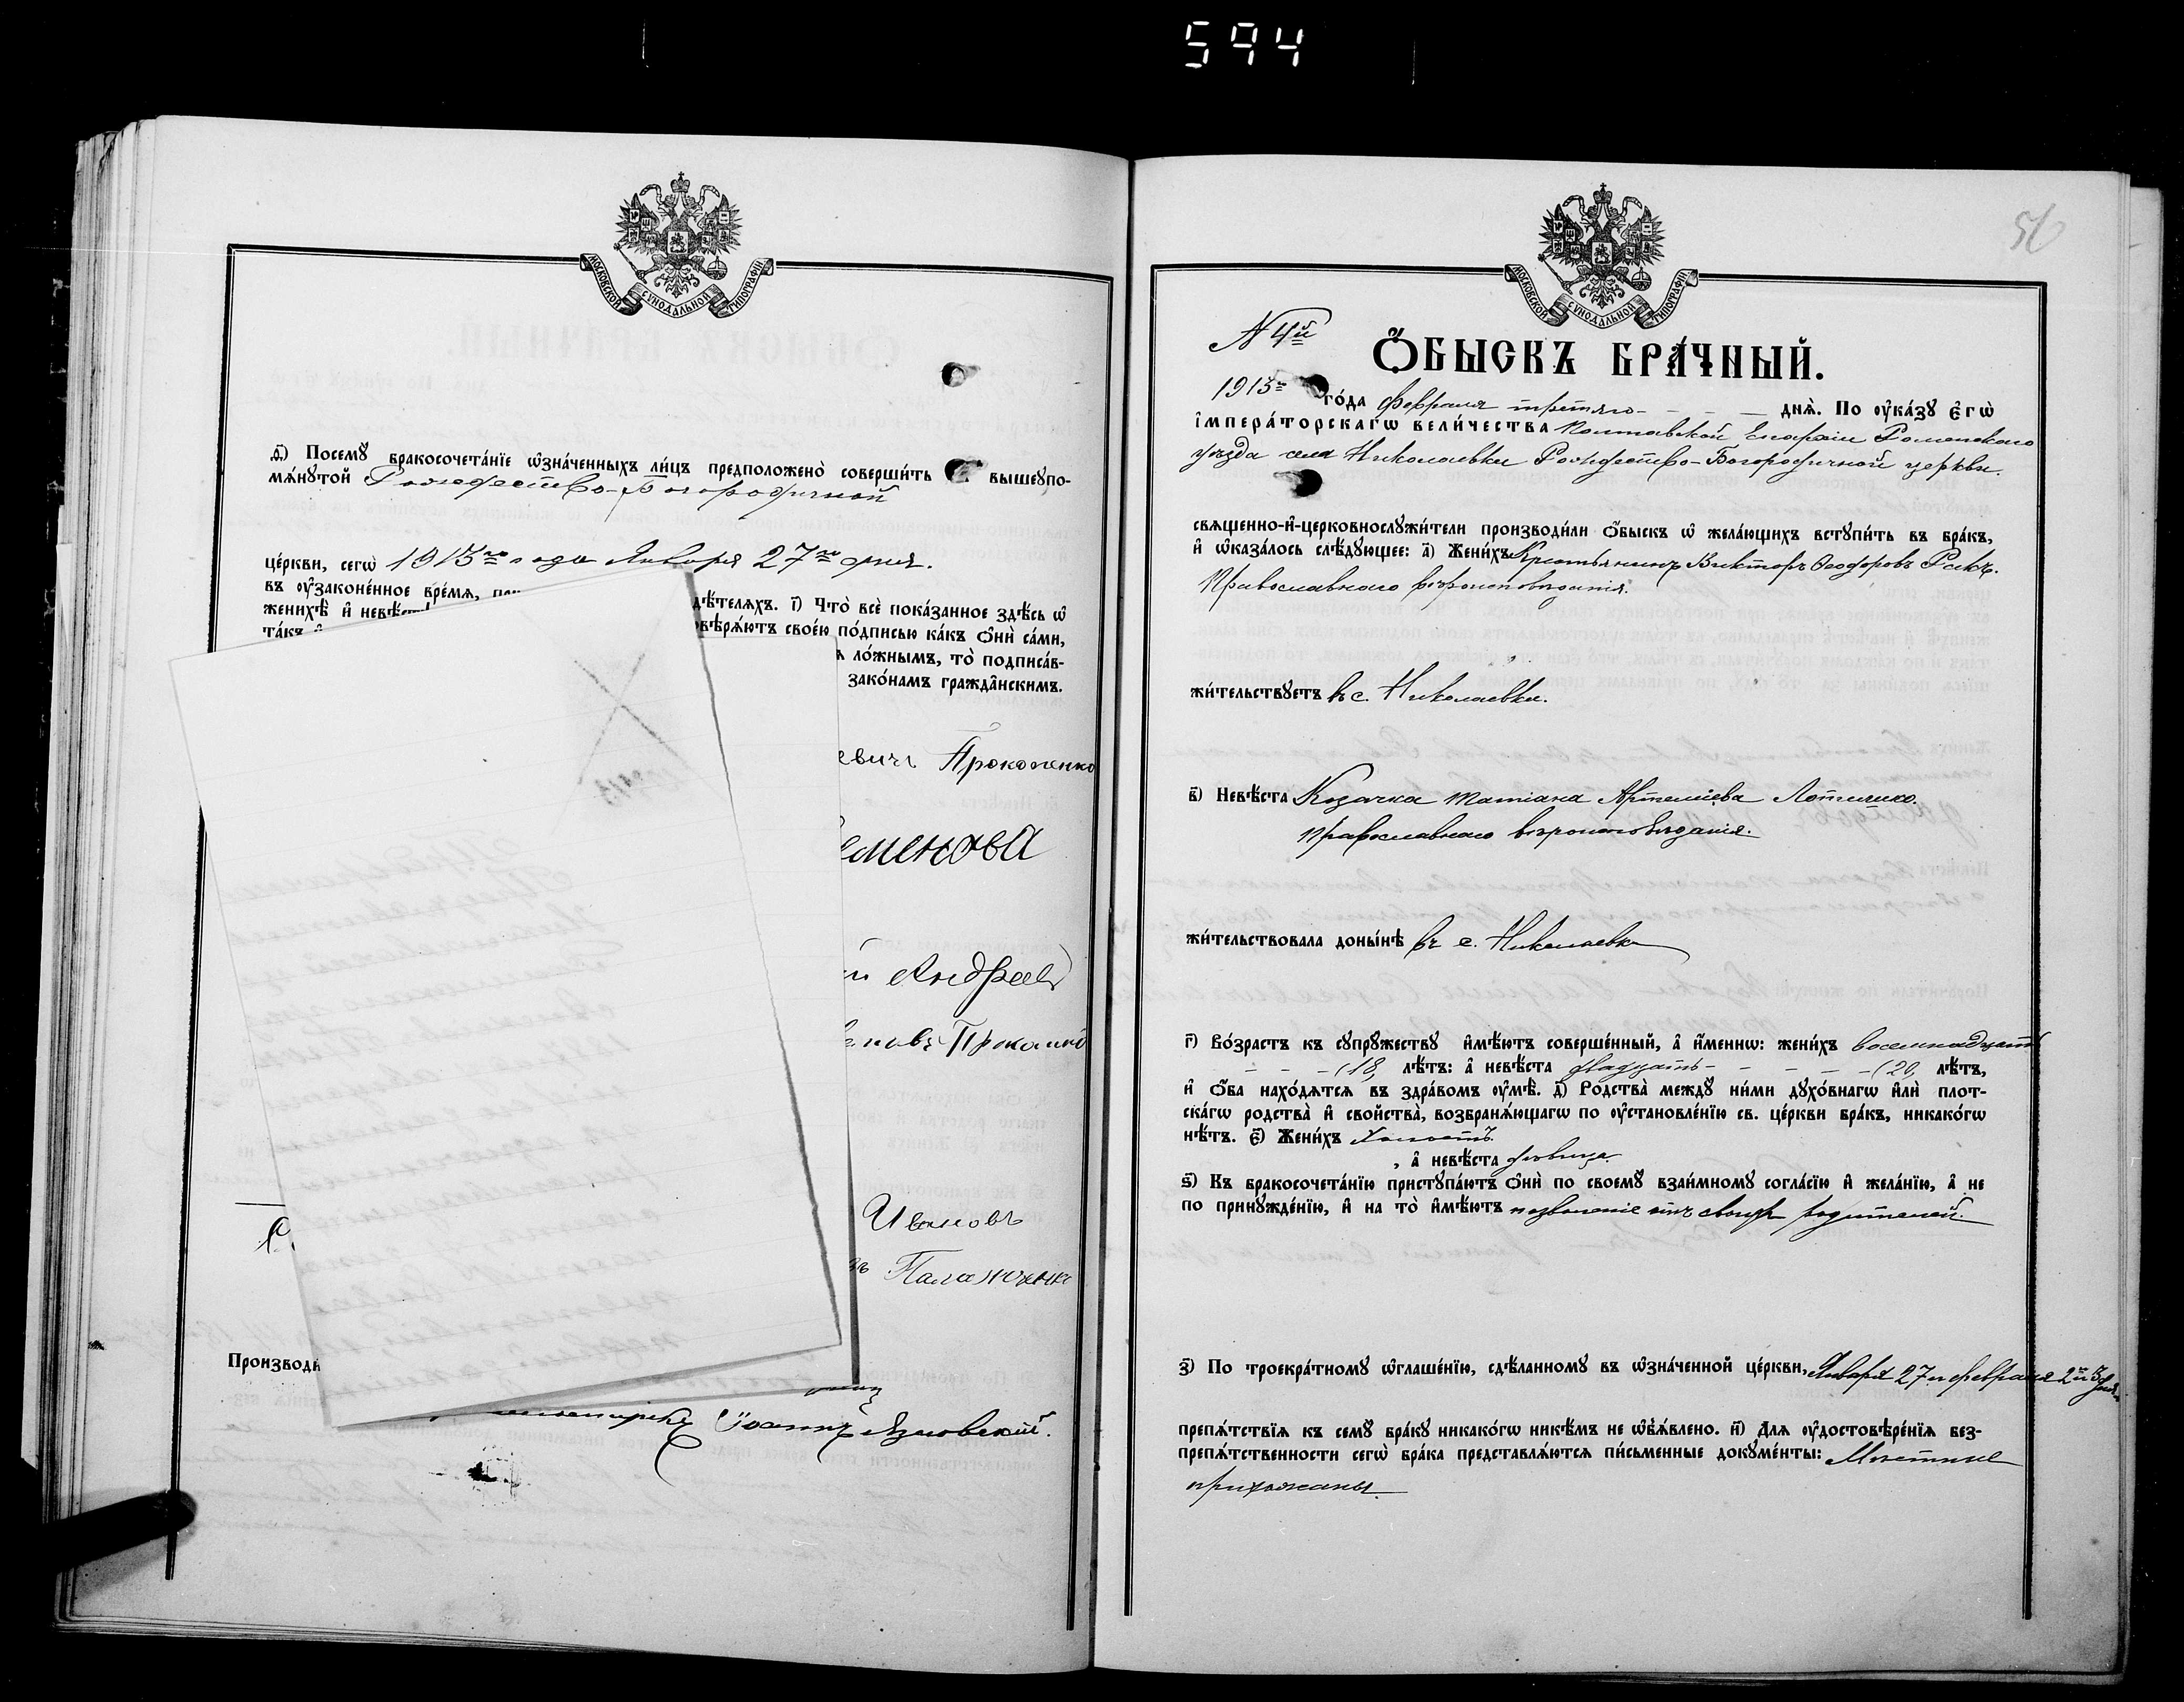 594
МОСКОВСКОЙ СѴНОДАЛЬНОЙ ТИПОГРАФІИ
ѳ҃) Посемꙋ̀ бракосочета́нїе ѡ҆зна́ченныхъ ли́цъ предположено̀ соверши́ть вышеꙋпо-
мѧ́нꙋтой Рождество-Богородичной
це́ркви, сегѡ̀ 1913го года Января 27го дня.
въ ᲂу҆зако́ненное вре́мѧ, при
дѣ́телѧхъ. і҃) Что̀ всѐ пока́занное здѣ́сь ѡ҆
женихѣ̀ и҆ невѣ́стѣ
овѣрѧ́ютъ свое́ю по́дписью ка́къ ѻ҆нѝ са́ми,
та́къ и҆
ѧ ло́жнымъ, то̀ подписа́в-
зако́намъ гражда̑нскимъ.
евичъ Прокопенко
еменова
й Андреев
Ивановъ
Палажченко
Производи
Іоаннъ Язловскій.
56
МОСКОВСКОЙ СѴНОДАЛЬНОЙ ТИПОГРАФІИ
N 4й
Ѻ҆БЫСКЪ БРА́ЧНЫЙ.
1913го го́да февраля третяго - - - - днѧ̀. По ᲂу҆ка́зꙋ Є҆гѡ̀
І҆мпера́торскагѡ Вели́чества Полтавской Епархіи Роменскаго
уѣзда села Николаевки Рождество-Богородичной церкви.
свѧще́нно-и҆-церковнослꙋжи́тели производи́ли ѻ҆́быскъ ѡ҆ жела́ющихъ встꙋпи́ть въ бра́къ,
и҆ ѡ҆каза́лось слѣ́дꙋющее: а҃) Жени́хъ Крестьянинъ Викторъ Ѳеодоровъ Ракъ.
Православнаго вѣроисповѣданія.
жи́тельствꙋетъ въ с. Николаевки.
в҃) Невѣ́ста Козачка Татіана Артеміева
православнаго вѣроисповѣданія.
жи́тельствовала доны́нѣ въ с. Николаевки
г҃) Во́зрастъ къ сꙋпрꙋ́жествꙋ и҆мѣ́ютъ соверше́нный, а҆ и҆́меннѡ: жени́хъ восемнадцать
- - - (18, лѣ́тъ: а҆ невѣ́ста двадцать - - - - - (20, лѣ́тъ,
и҆ ѻ҆́ба нахо́дѧтсѧ въ здра́вомъ ᲂу҆мѣ̀. д҃) Родства̀ междꙋ̀ ни́ми дꙋхо́внагѡ и҆лѝ плот-
ска́гѡ родства̀ и҆ сво́йства̀, возбранѧ́ющагѡ по ᲂу҆становле́нїю св. це́ркви бра́къ, никако́гѡ
нѣ́тъ. є҃) Жени́хъ холостъ.
, а҆ невѣ́ста дѣвица.
ѕ҃) Къ бракосочета́нїю пристꙋпа́ютъ ѻ҆нѝ по своемꙋ̀ взаи́мномꙋ согла́сїю и҆ жела́нїю, а҆ не
по принꙋжде́нїю, и҆ на то̀ и҆мѣ́ютъ позволеніе отъ своихъ родителей.
з҃) По троекра́тномꙋ ѡ҆глаше́нїю, сдѣ́ланномꙋ въ ѡ҆зна́ченной це́ркви, Января 27 и февраля 2 и 3 дня.
препѧ́тствїѧ къ семꙋ̀ бра́кꙋ никако́гѡ никѣ́мъ не ѡ҆б̾ѧ́влено. и҃) Длѧ ᲂу҆достовѣре́нїѧ без-
препѧ́тственности сегѡ̀ бра́ка представлѧ́ютсѧ пи́сьменные докꙋме́нты: Мѣстные
прихожаны.